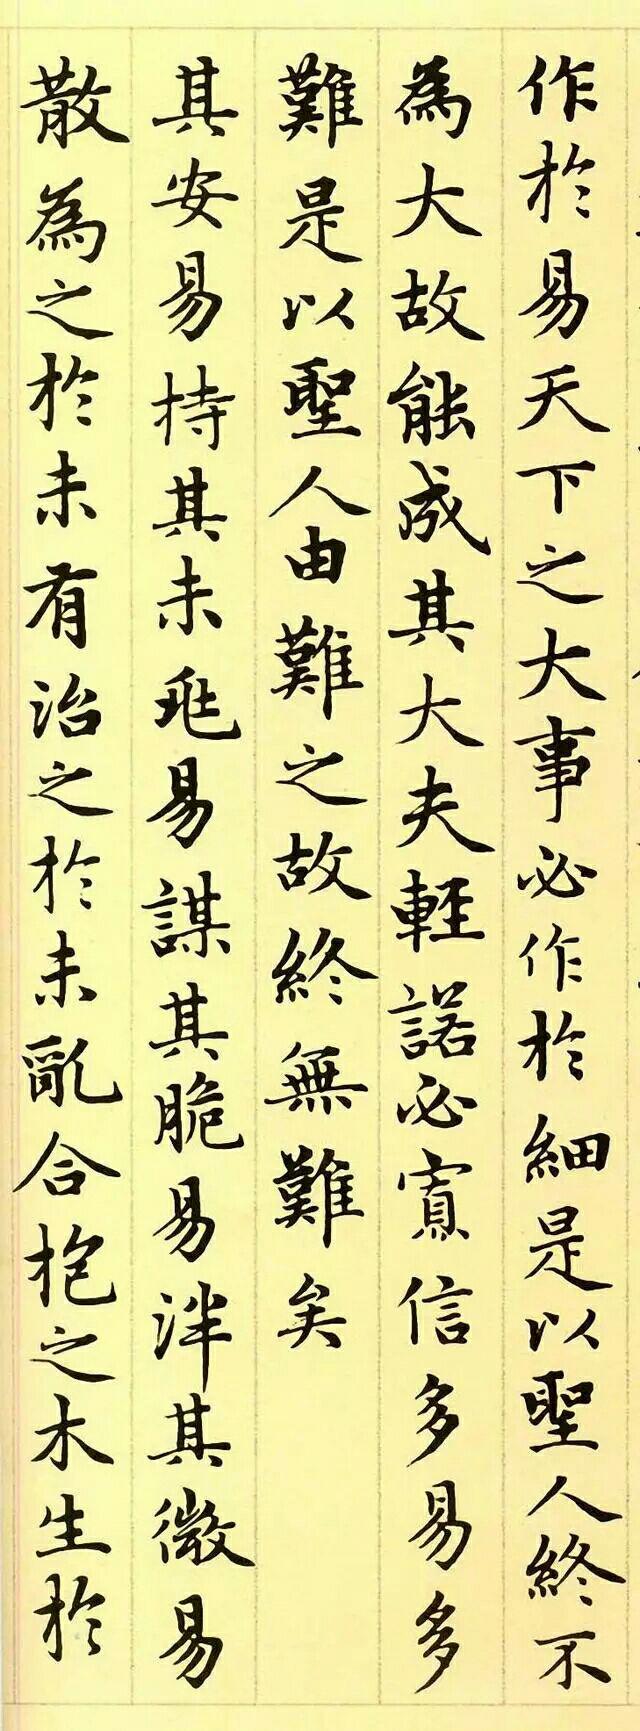 作於易天下之大事必作於細是以聖人終不
為大故能成其大夫輕諾必寡信多易多
難是以聖人由難之故終無難矣
其安易持其未兆易謀其脆易泮其微易
散為之於未有治之於未亂合抱之木生於